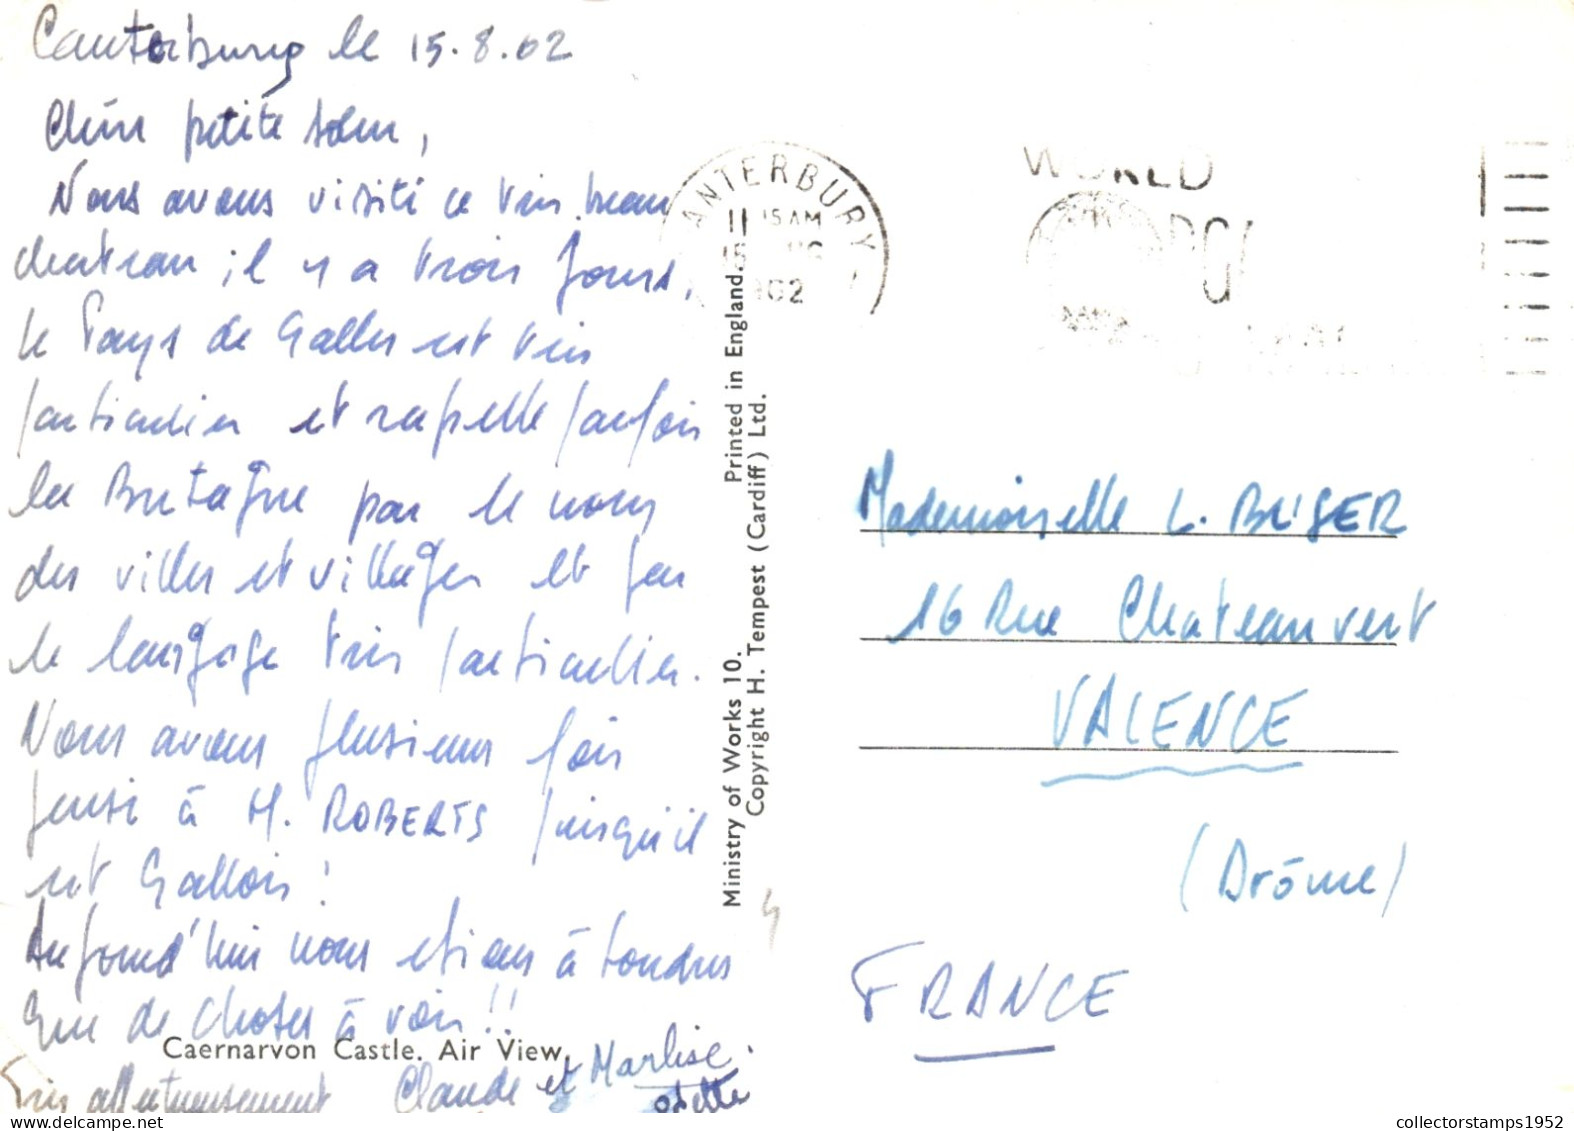 Canterbury le 15.8.62
Chère petite sœur,
Nous avons visité ce très beau
chateau ; il y a trois jours,
le Pays de Galles est très
particulier et rappelle parfois
la Bretagne par le noms
des villes et villages et par
le langage très particulier.
Nous avons plusieurs fois
pensé à M. ROBERTS puisqu'il
est Gallois !
Aujourd'hui nous etions à Londres
que de choses à voir !!
Très affectueusement Claude et Marlise.
odette
Caernarvon Castle. Air View.
ANTERBURY
11 15 AM
WORLD
Ministry of Works 10. Printed in England.
Copyright H. Tempest (Cardiff) Ltd.
Mademoiselle L.
16 Rue Chateauvert
VALENCE
(Drôme)
FRANCE
collectorstamps1952